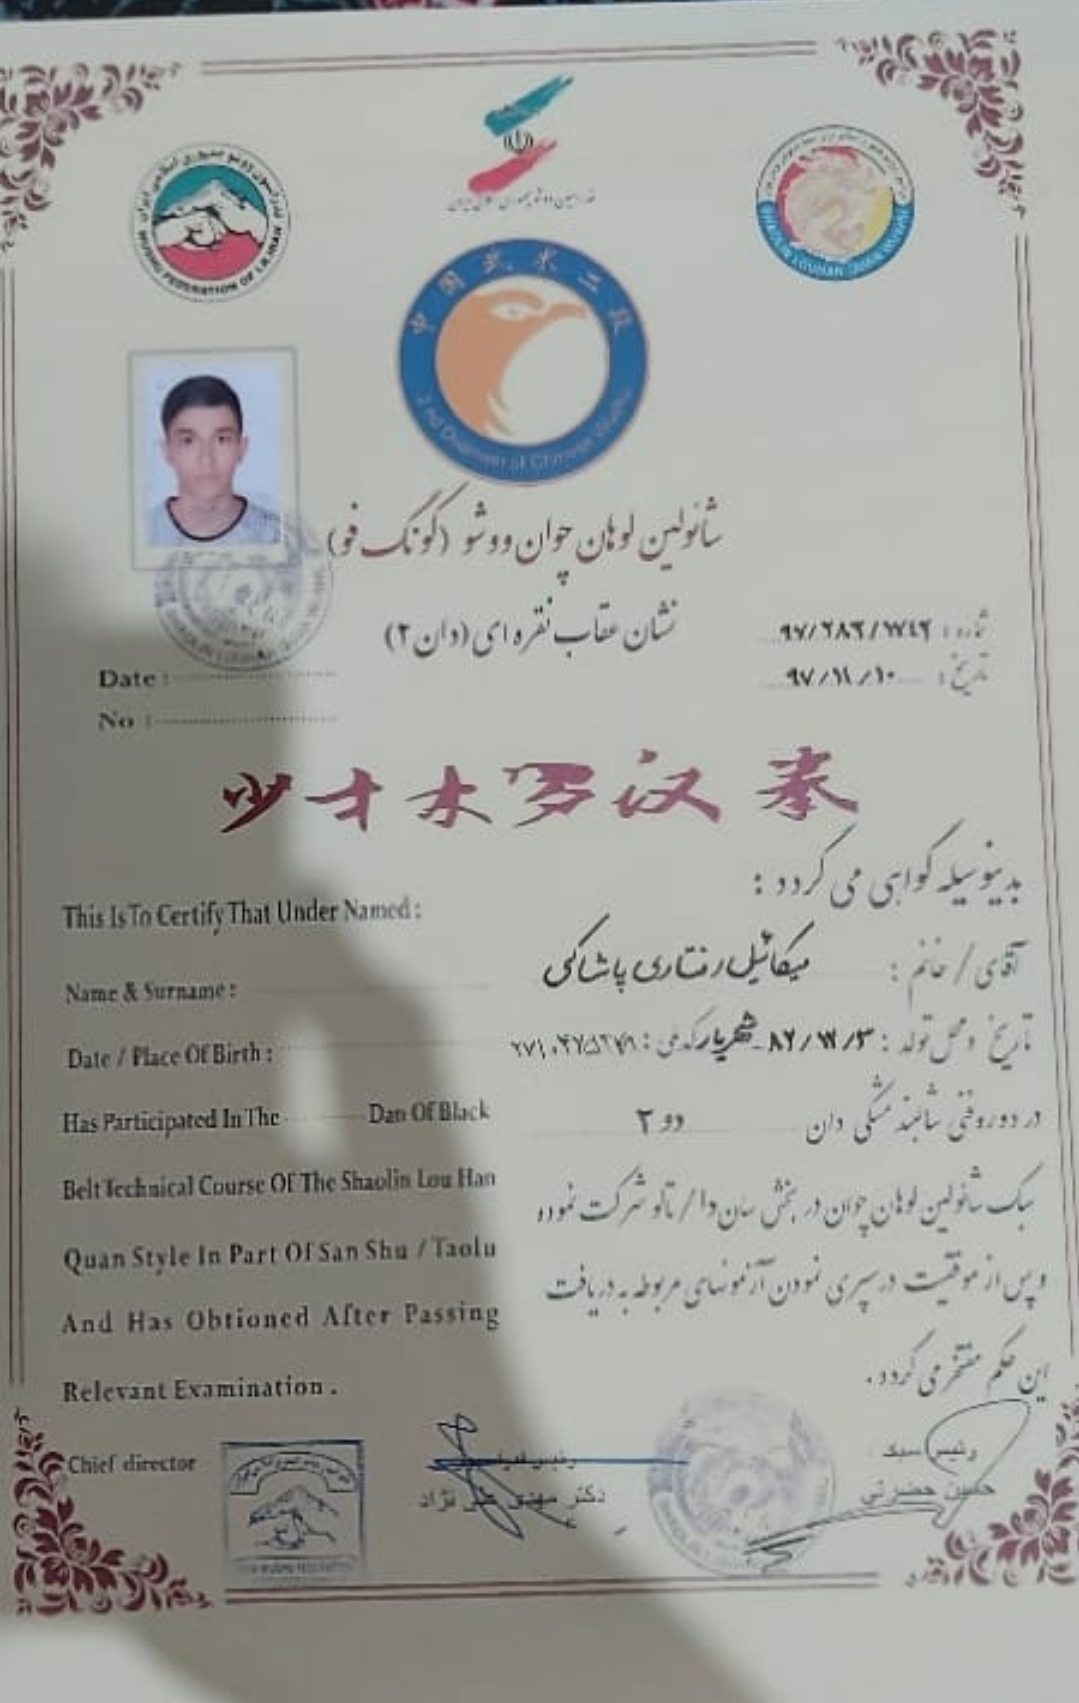 فدراسیون ووشو جمهوری اسلامی ایران
WUSHU FEDERATION OF I.R.IRAN
فدراسیون ووشو جمهوری اسلامی ایران
SHAOLIN LOUHAN QUAN WUSHU
中国武术二段
2nd Duanwei of Chinese Wushu
شائولین لوهان چوان ووشو (گونگ فو)
نشان عقاب نقره ای (دان ۲)
شماره : ۹۷/۲۸۳/۱۷۴۲
تاریخ : ۹۷/۱۱/۱۰
Date :
No :
少林罗汉拳
بدینوسیله گواهی می گردد :
This Is To Certify That Under Named :
آقای / خانم : میکائیل رفتاری پاشاکی
Name & Surname :
تاریخ و محل تولد : ۸۲/۱۲/۳ - شهریار کد ملی :
Date / Place Of Birth :
در دوره فنی شالبند مشکی دان دو ۲
Has Participated In The Dan Of Black
سبک شائولین لوهان چوان در بخش سان دا / تالو شرکت نموده
Belt Technical Course Of The Shaolin Lou Han
و پس از موفقیت در سپری نمودن آزمونهای مربوطه به دریافت
Quan Style In Part Of San Shu / Taolu
این حکم مفتخر می گردد .
And Has Obtioned After Passing
Relevant Examination .
Chief director
رئیس
دکتر مهدی علی نژاد
رئیس سبک
حسین حضرتی